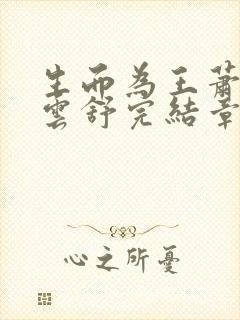 生而為王蕭
雲舒完結章
心之所憂